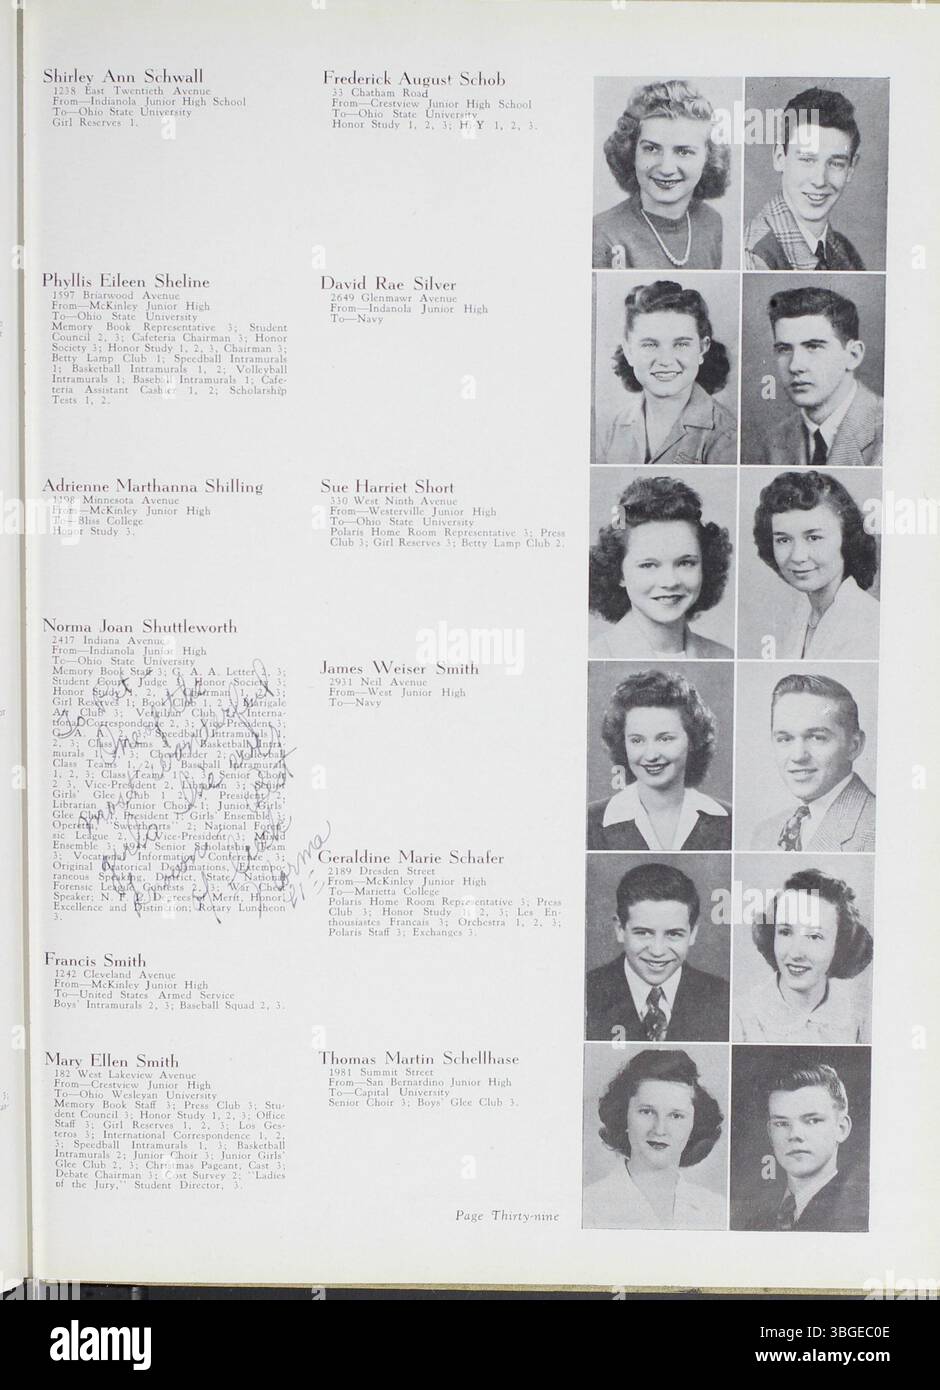 Shirley Ann Schwall
1238 East Twentieth Avenue
From—Indianola Junior High School
To—Ohio State University
Girl Reserves 1.
Frederick August Schob
33 Chatham Road
From—Crestview Junior High School
To—Ohio State University
Honor Study 1, 2, 3; Hi-Y 1, 2, 3.
Phyllis Eileen Sheline
1597 Briarwood Avenue
From—McKinley Junior High
To—Ohio State University
Memory Book Representative 3; Student
Council 2, 3; Cafeteria Chairman 3; Honor
Society 3; Honor Study 1, 2, 3, Chairman 3;
Betty Lamp Club 1; Speedball Intramurals
1; Basketball Intramurals 1, 2; Volleyball
Intramurals 1; Baseball Intramurals 1; Cafe-
teria Assistant Cashier 1, 2; Scholarship
Tests 1, 2.
David Rae Silver
2649 Glenmawr Avenue
From—Indanola Junior High
To—Navy
Adrienne Marthanna Shilling
1498 Minnesota Avenue
From—McKinley Junior High
To—Bliss College
Honor Study 3.
Sue Harriet Short
330 West Ninth Avenue
From—Westerville Junior High
To—Ohio State University
Polaris Home Room Representative 3; Press
Club 3; Girl Reserves 3; Betty Lamp Club 2.
Norma Joan Shuttleworth
2417 Indiana Avenue
From—Indianola Junior High
To—Ohio State University
Memory Book Staff 3; G. A. A. Letter 2, 3;
Student Court Judge 3; Honor Society 3;
Honor Study 1, 2, Chairman 1, 2, 3;
Girl Reserves 1; Book Club 1, 2; Marigale
Art Club 3; Vergilian Club Interna-
tional Correspondence 2, 3; Vice-President 3;
G. A. A. 2, 3; Speedball Intramurals 1,
2, 3; Class Teams Basketball Intra-
murals 1, 2, 3; Cheerleader 2; Volleyball
Class Teams 1, 2, Baseball Intramurals
1, 2, 3; Class Teams 1, 2, 3; Senior Choir
2, 3, Vice-President 2, Librarian 3; Senior
Girls' Glee Club 1, 2, 3, President 2,
Librarian Junior Choir 1; Junior Girls'
Glee Club President 1; Girls' Ensemble
Operetta, "Sweethearts" 2; National Foren-
sic League 2, Vice-President 3; Mixed
Ensemble 3; Senior Scholarship Team
3; Vocational Information Conference 3;
Original Oratorical Declamations, Extempo-
raneous Speaking, District, State, National
Forensic League Contests 2, 3; War Chest
Speaker; N. F. L. Degrees of Merit, Honor,
Excellence and Distinction; Rotary Luncheon
3.
Norma
James Weiser Smith
2931 Neil Avenue
From—West Junior High
To—Navy
Geraldine Marie Schafer
2189 Dresden Street
From—McKinley Junior High
To—Marietta College
Polaris Home Room Representative 3; Press
Club 3; Honor Study 1, 2, 3; Les En-
thousiastes Francais 3; Orchestra 1, 2, 3;
Polaris Staff 3; Exchanges 3.
Francis Smith
1242 Cleveland Avenue
From—McKinley Junior High
To—United States Armed Service
Boys' Intramurals 2, 3; Baseball Squad 2, 3.
Mary Ellen Smith
182 West Lakeview Avenue
From—Crestview Junior High
To—Ohio Wesleyan University
Memory Book Staff 3; Press Club 3; Stu-
dent Council 3; Honor Study 1, 2, 3; Office
Staff 3; Girl Reserves 1, 2, 3; Los Ges-
teros 3; International Correspondence 1, 2,
3; Speedball Intramurals 1, 3; Basketball
Intramurals 2; Junior Choir 3; Junior Girls'
Glee Club 2, 3; Christmas Pageant, Cast 3;
Debate Chairman 3; Cost Survey 2; "Ladies
of the Jury," Student Director, 3.
Thomas Martin Schellhase
1981 Summit Street
From—San Bernardino Junior High
To—Capital University
Senior Choir 3; Boys' Glee Club 3.
Page Thirty-nine
alamy
Image ID: 3BGEC0E
www.alamy.com